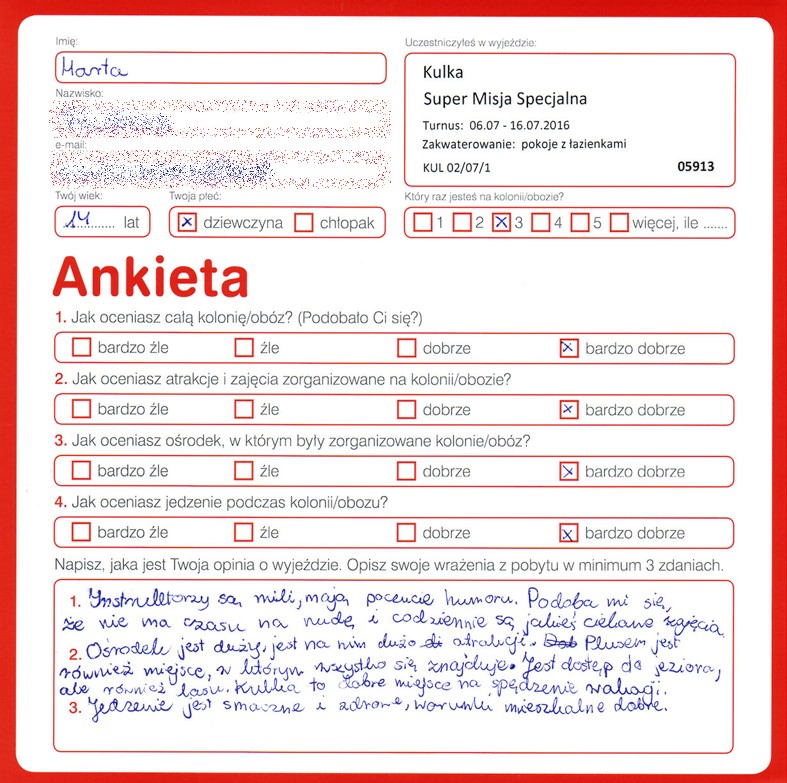 Imię:
Marta
Nazwisko:
e-mail:
Twój wiek:
14 lat
Twoja płeć:
dziewczyna chłopak
Uczestniczyłeś w wyjeździe:
Kulka
Super Misja Specjalna
Turnus: 06.07 - 16.07.2016
Zakwaterowanie: pokoje z łazienkami
KUL 02/07/1 05913
Który raz jesteś na kolonii/obozie?
1 2 3 4 5 więcej, ile .......
Ankieta
1. Jak oceniasz całą kolonię/obóz? (Podobało Ci się?)
bardzo źle źle dobrze bardzo dobrze
2. Jak oceniasz atrakcje i zajęcia zorganizowane na kolonii/obozie?
bardzo źle źle dobrze bardzo dobrze
3. Jak oceniasz ośrodek, w którym były zorganizowane kolonie/obóz?
bardzo źle źle dobrze bardzo dobrze
4. Jak oceniasz jedzenie podczas kolonii/obozu?
bardzo źle źle dobrze bardzo dobrze
Napisz, jaka jest Twoja opinia o wyjeździe. Opisz swoje wrażenia z pobytu w minimum 3 zdaniach.
1. Instruktorzy są mili, mają poczucie humoru. Podoba mi się,
że nie ma czasu na nudę i codziennie są jakieś ciekawe zajęcia.
2. Ośrodek jest duży, jest na nim dużo atrakcji. Plusem jest
również miejsce, w którym wszystko się znajduje. Jest dostęp do jeziora,
ale również lasu. Kulka to dobre miejsce na spędzenie wakacji.
3. Jedzenie jest smaczne i zdrowe, warunki mieszkalne dobre.